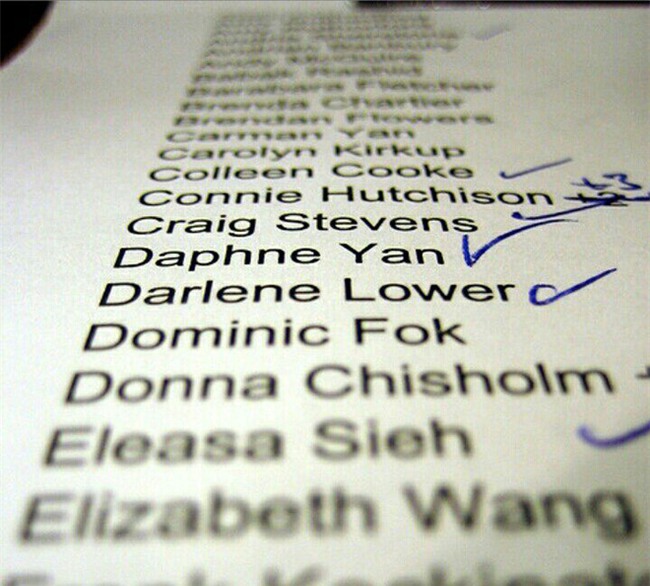 Barabara Fletcher
Brenda Chartier
Brendan Flowers
Carman Yan
Carolyn Kirkup
Colleen Cooke
Connie Hutchison +3
Craig Stevens
Daphne Yan
Darlene Lower
Dominic Fok
Donna Chisholm
Eleasa Sieh
Elizabeth Wang